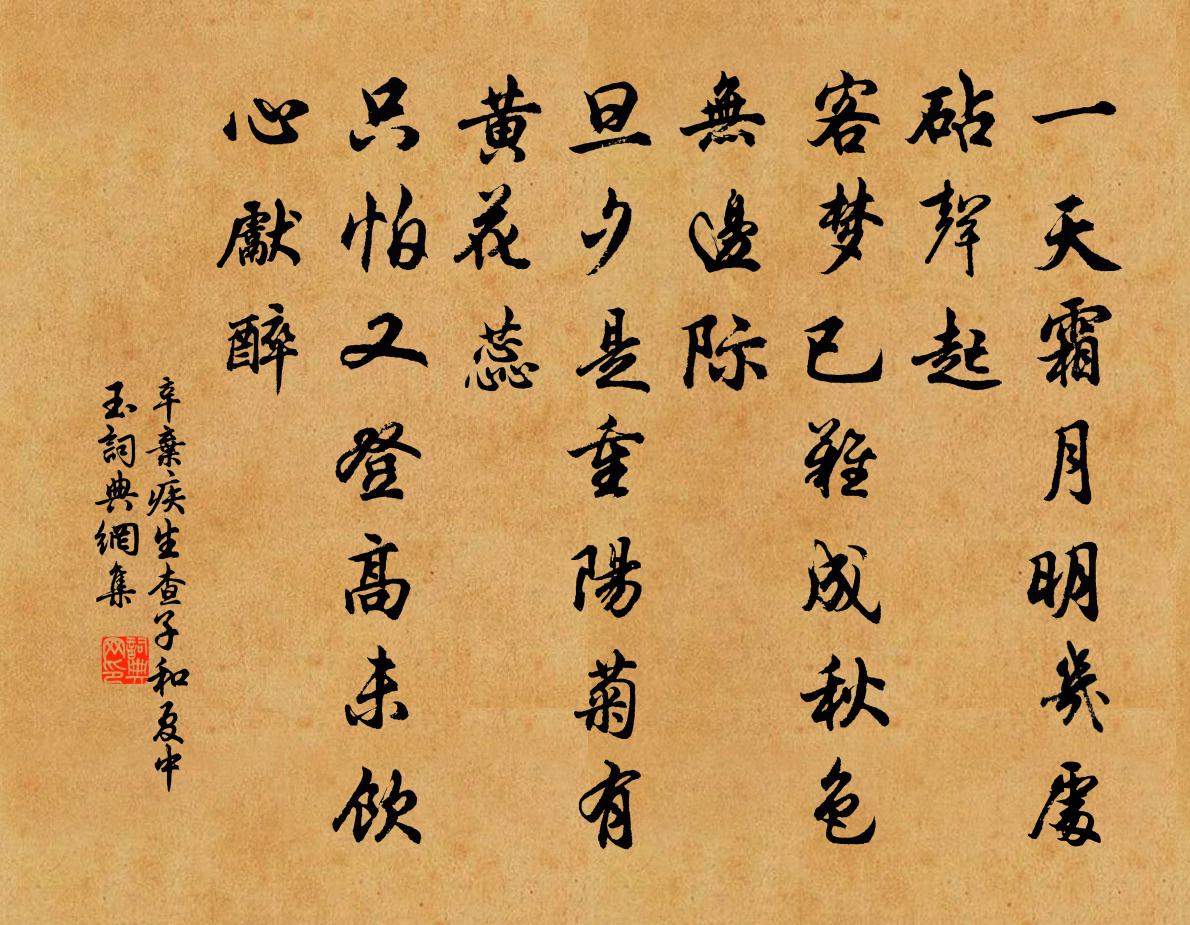 一天霜月明幾處
砧聲起
客梦已難成秋色
無邊际
旦夕是重陽菊有
黄花蕊
只怕又登高未飲
心獻醉
辛棄疾生查子和夏中
玉詞典網集
詞典网印